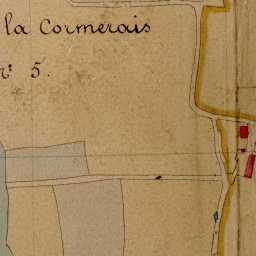 la Cormerais
n: 5.